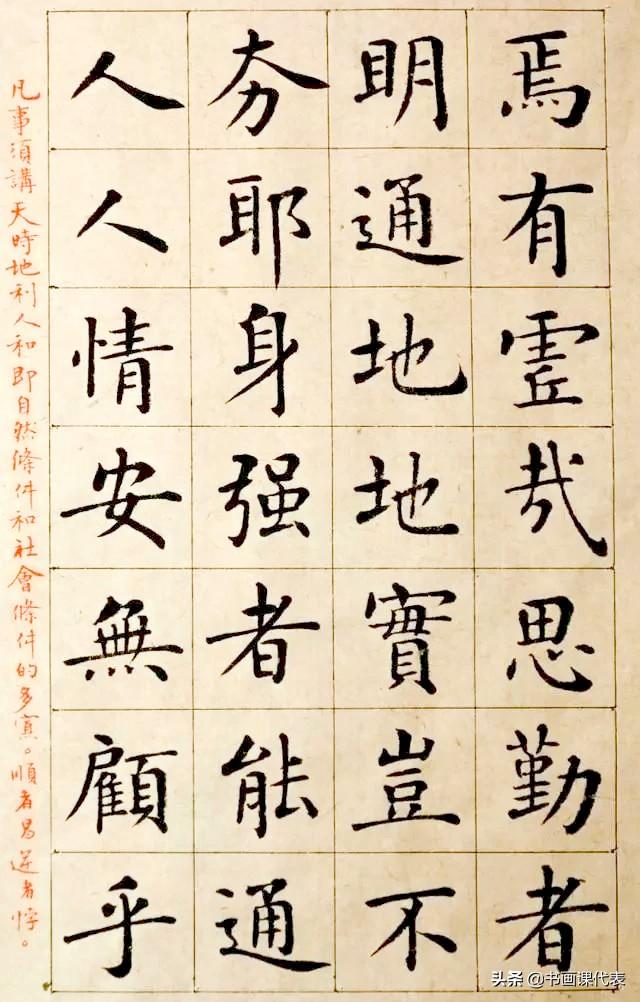 焉有哉思勤者
明通地地實豈不
夯耶身强者能通
人人情安無顧乎
凡事須講天時地利人和即自然條件和社會條件的多寡。順者易逆者悖。
头条 @书画课代表